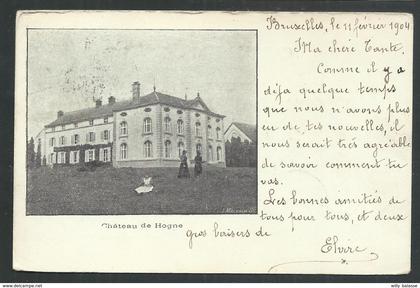 Bruxelles, le 11 février 1904.
Ma chère Tante,
Comme il y a
déja quelque temps
que nous n'avons plus
eu de tes nouvelles, il
nous serait très agréable
de savoir comment tu
vas.
Les bonnes amitiés de
tous pour tous, et deux
gros baisers de
Elvire
Château de Hogne
www.delcampe.net
willy balasse